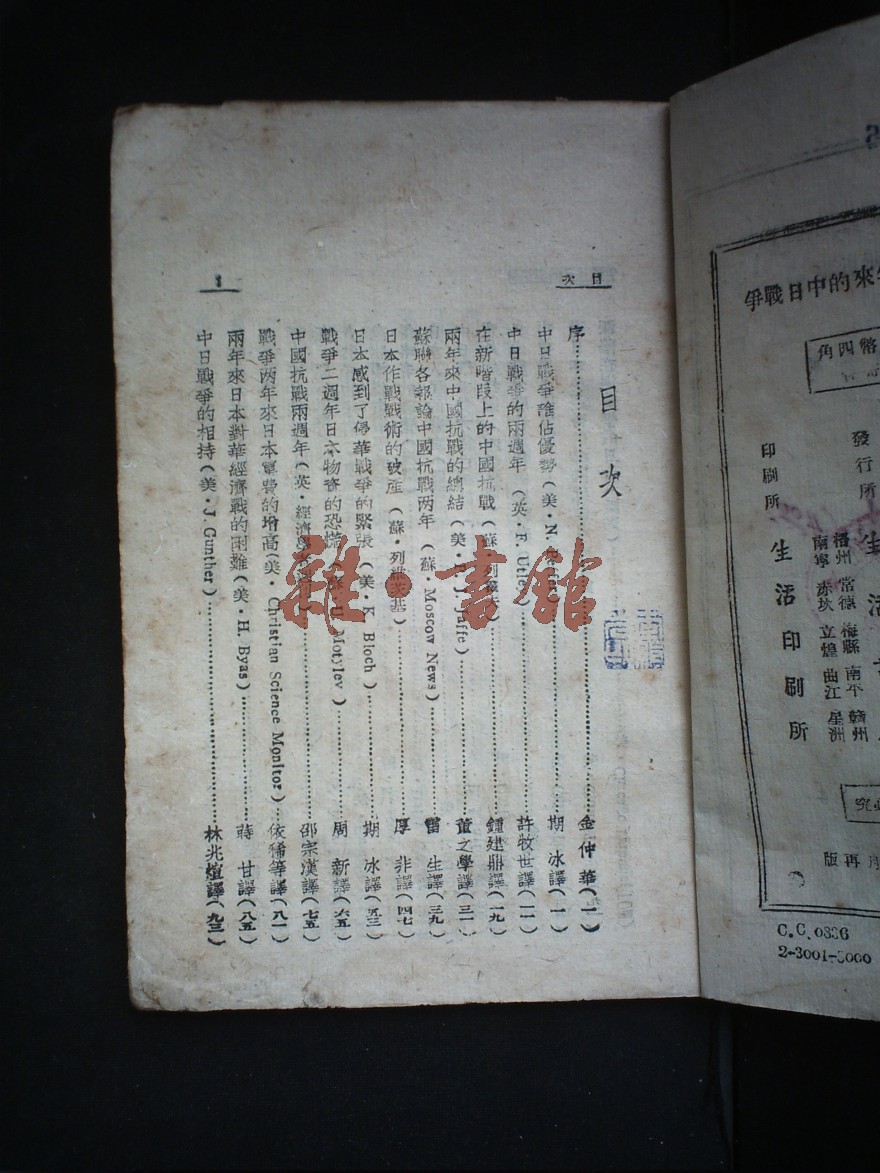 目次
1
目　次
序…………金仲華（一）
中日戰爭誰佔優勢（美・N. …………期　冰譯（一）
中日戰爭的兩週年（英・F. Utley）…………許牧世譯（一一）
在新階段上的中國抗戰（蘇・…………鍾建鼎譯（一九）
兩年來中國抗戰的總結（美・P. J. Jaffe）…………董之學譯（三一）
蘇聯各報論中國抗戰两年（蘇・Moscow News）…………雷　生譯（三九）
日本作戰戰術的破產（蘇・列維茨基）…………厚　非譯（四七）
日本感到了侵華戰爭的緊張（美・K. Bloch）…………期　冰譯（五三）
戰爭二週年日本物資的恐慌（蘇・Motylev）…………周　新譯（六五）
中國抗戰兩週年（英・經濟學…………邵宗漢譯（七五）
戰爭两年來日本軍費的增高（美・Christian Science Monitor）…依稀等譯（八一）
兩年來日本對華經濟戰的困難（美・H. Byas）…………蔣　甘譯（八五）
中日戰爭的相持（美・J. Gunther）…………林兆煊譯（九三）
來的中日戰爭
幣四角
發行所
生活
梧州 常德 梅縣 南平 贛州
南寧 赤坎 立煌 曲江 星洲
印刷所
生活印刷所
究
再版
C.C. 0336
2-3001-5000
雜・書館